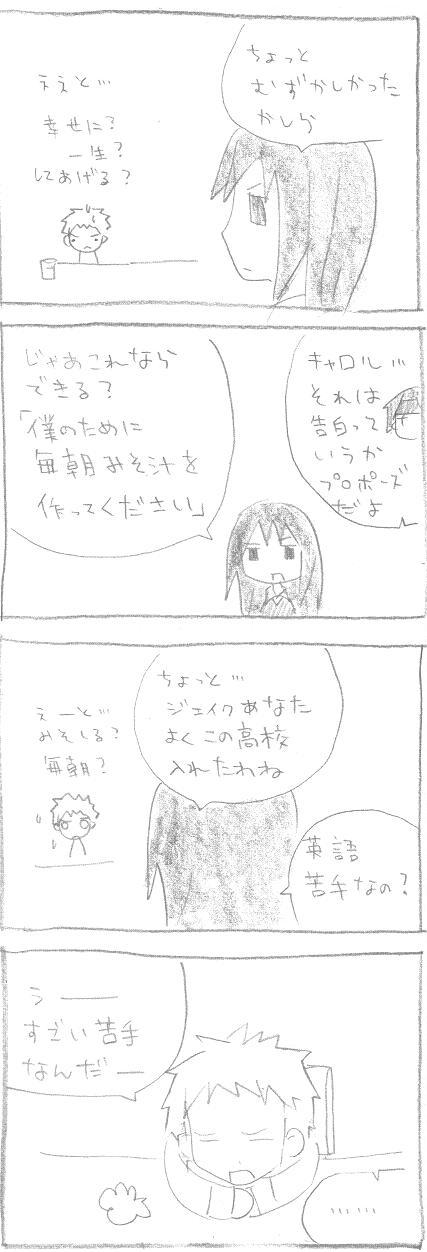 ちょっと
むずかしかった
かしら
ええと…
幸せに?
一生?
してあげる?
キャロル…
それは
告白って
いうか
プロポーズ
だよ
じゃあこれなら
できる?
「僕のために
毎朝みそ汁を
作ってください」
ちょっと…
ジェイクあなた
よくこの高校
入れたわね
えーと…
みそしる?
毎朝?
英語
苦手なの?
うー
すごい苦手
なんだー
……